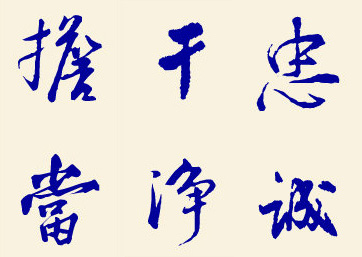 忠誠
干净
擔當